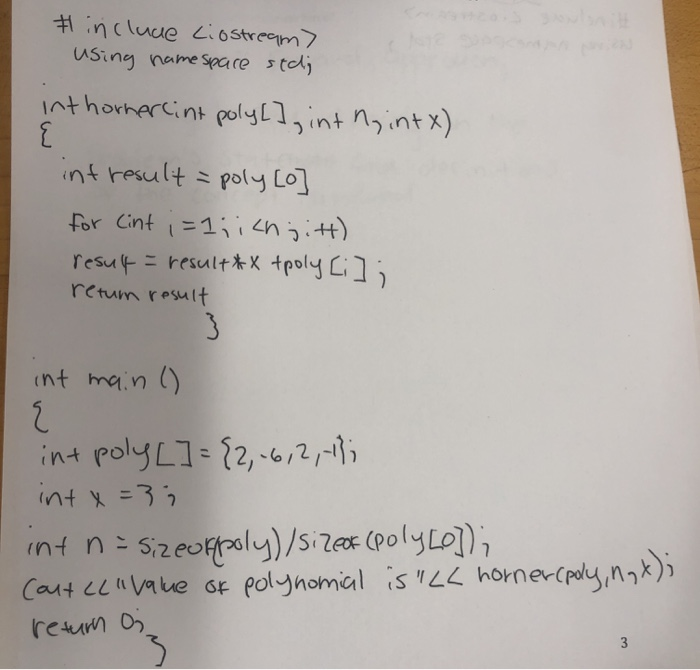 # include <iostream>
using namespace std;
int horner(int poly[], int n, int x)
{
int result = poly[0]
for (int i = 1; i < n ; i++)
result = result*x + poly[i];
return result
}
int main ()
{
int poly[] = {2, -6, 2, -1};
int x = 3;
int n = sizeof(poly)/sizeof(poly[0]);
cout << "Value of polynomial is "<< horner(poly, n, x);
return 0;
}
3